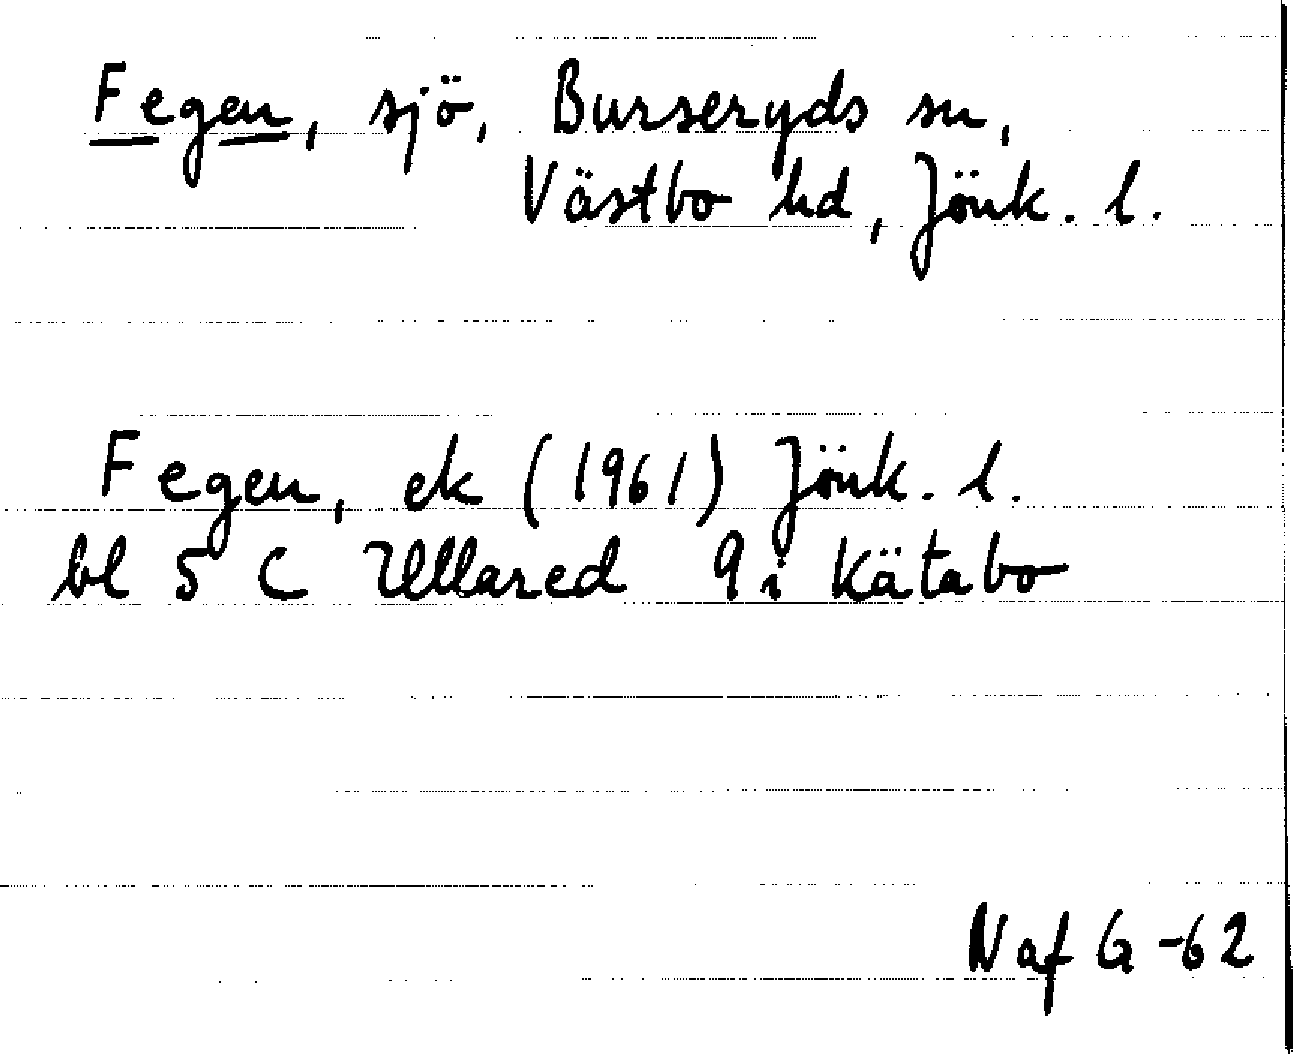 Fegen, sjö, Burseryds sn,
Västbo hd, Jönk. l.
Fegen, ek (1961) Jönk. l.
bl 5 C Ullared 9 i Kätabo
N af G -62